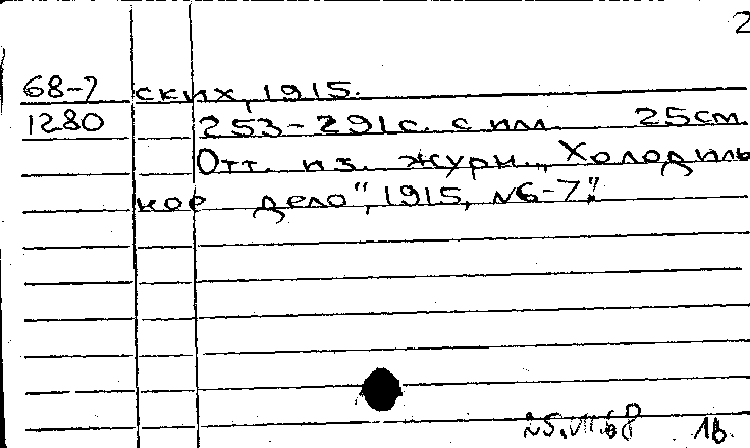 2
68-7 ских, 1915.
1280 253-291с. с ил. 25см.
Отт. из. журн. „Холодиль
ное дело", 1915, №6-7."
25.VII.68 1в.